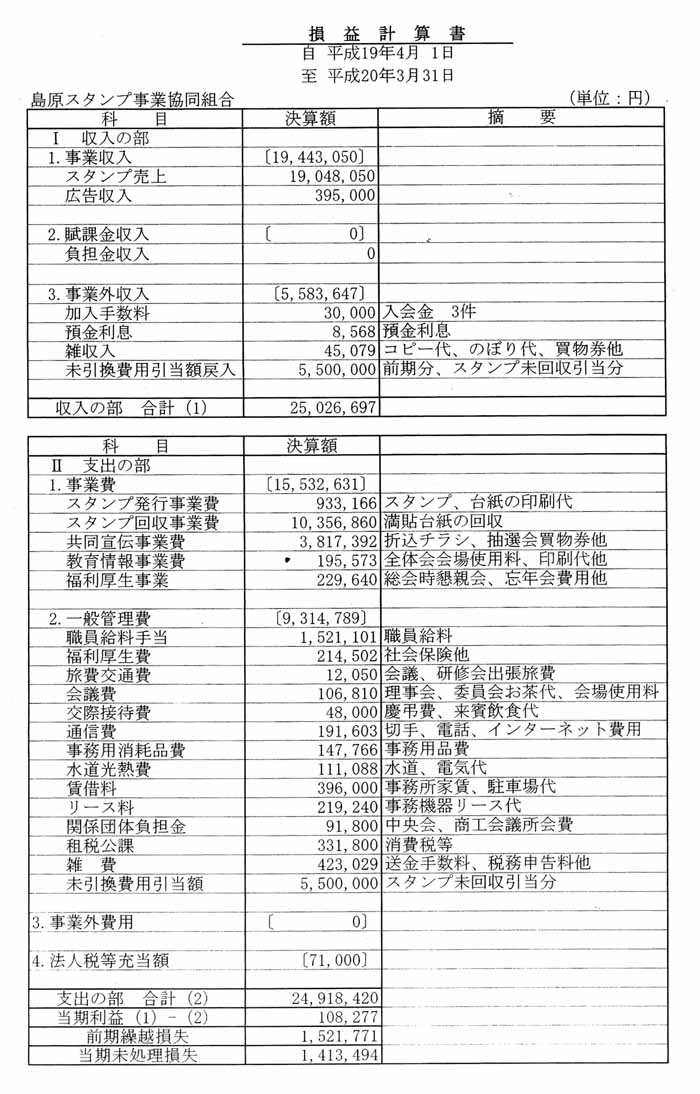 損益計算書
自 平成19年4月 1日
至 平成20年3月31日
島原スタンプ事業協同組合 (単位:円)
科 目 決算額 摘 要
Ⅰ 収入の部
1.事業収入 〔19,443,050〕
スタンプ売上 19,048,050
広告収入 395,000
2.賦課金収入 〔 0〕
負担金収入 0
3.事業外収入 〔5,583,647〕
加入手数料 30,000 入会金 3件
預金利息 8,568 預金利息
雑収入 45,079 コピー代、のぼり代、買物券他
未引換費用引当額戻入 5,500,000 前期分、スタンプ未回収引当分
収入の部 合計(1) 25,026,697
科 目 決算額
Ⅱ 支出の部
1.事業費 〔15,532,631〕
スタンプ発行事業費 933,166 スタンプ、台紙の印刷代
スタンプ回収事業費 10,356,860 満貼台紙の回収
共同宣伝事業費 3,817,392 折込チラシ、抽選会買物券他
教育情報事業費 195,573 全体会会場使用料、印刷代他
福利厚生事業 229,640 総会時懇親会、忘年会費用他
2.一般管理費 〔9,314,789〕
職員給料手当 1,521,101 職員給料
福利厚生費 214,502 社会保険他
旅費交通費 12,050 会議、研修会出張旅費
会議費 106,810 理事会、委員会お茶代、会場使用料
交際接待費 48,000 慶弔費、来賓飲食代
通信費 191,603 切手、電話、インターネット費用
事務用消耗品費 147,766 事務用品費
水道光熱費 111,088 水道、電気代
賃借料 396,000 事務所家賃、駐車場代
リース料 219,240 事務機器リース代
関係団体負担金 91,800 中央会、商工会議所会費
租税公課 331,800 消費税等
雑 費 423,029 送金手数料、税務申告料他
未引換費用引当額 5,500,000 スタンプ未回収引当分
3.事業外費用 〔 0〕
4.法人税等充当額 〔71,000〕
支出の部 合計(2) 24,918,420
当期利益(1)-(2) 108,277
前期繰越損失 1,521,771
当期未処理損失 1,413,494